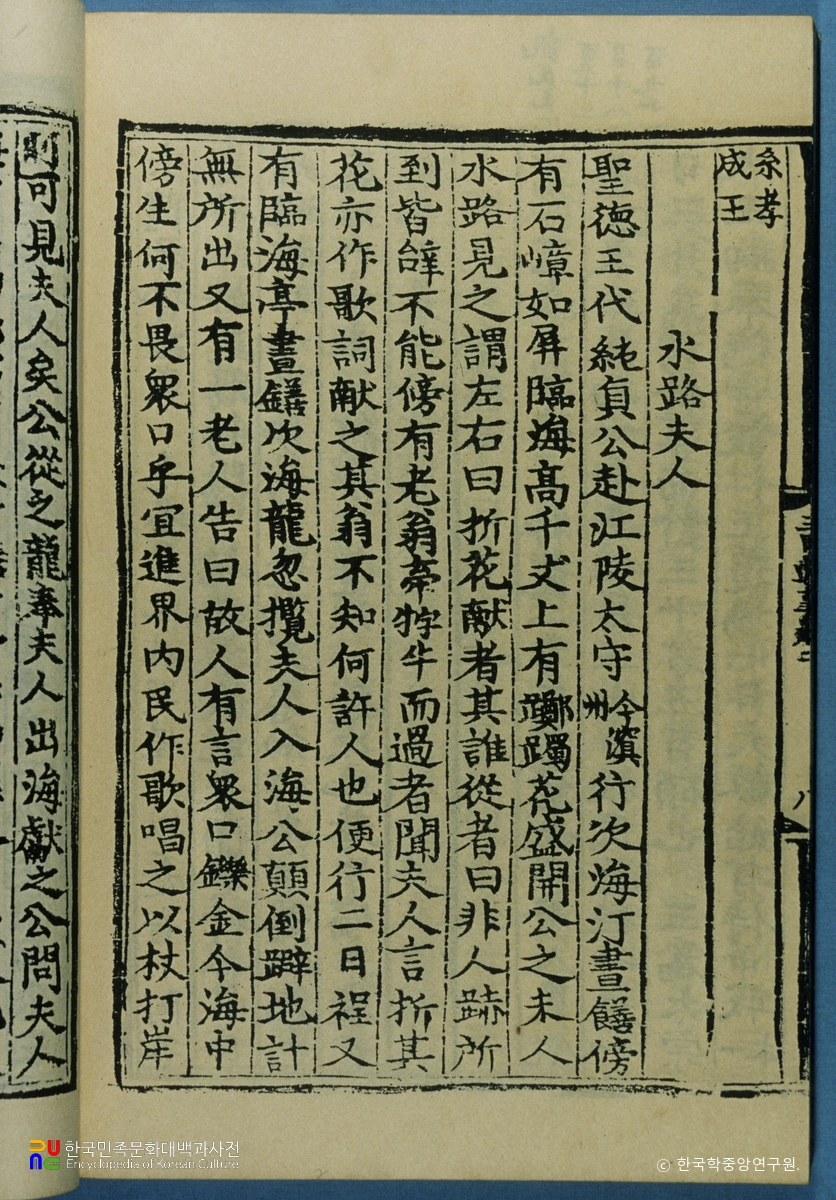 系孝
成王
水路夫人
聖德王代純貞公赴江陵太守今溟州行次海汀晝饍傍
有石嶂如屏臨海高千丈上有躑躅花盛開公之夫人
水路見之謂左右曰折花献者其誰從者曰非人跡所
到皆辞不能傍有老翁牽牸牛而過者聞夫人言折其
花亦作歌詞献之其翁不知何許人也便行二日程又
有臨海亭晝饍次海龍忽攬夫人入海公顛倒躃地計
無所出又有一老人告曰故人有言衆口鑠金今海中
傍生何不畏衆口乎宜進界内民作歌唱之以杖打岸
則可見夫人矣公從之龍奉夫人出海獻之公問夫人
한국민족문화대백과사전
Encyclopedia of Korean Culture
© 한국학중앙연구원.